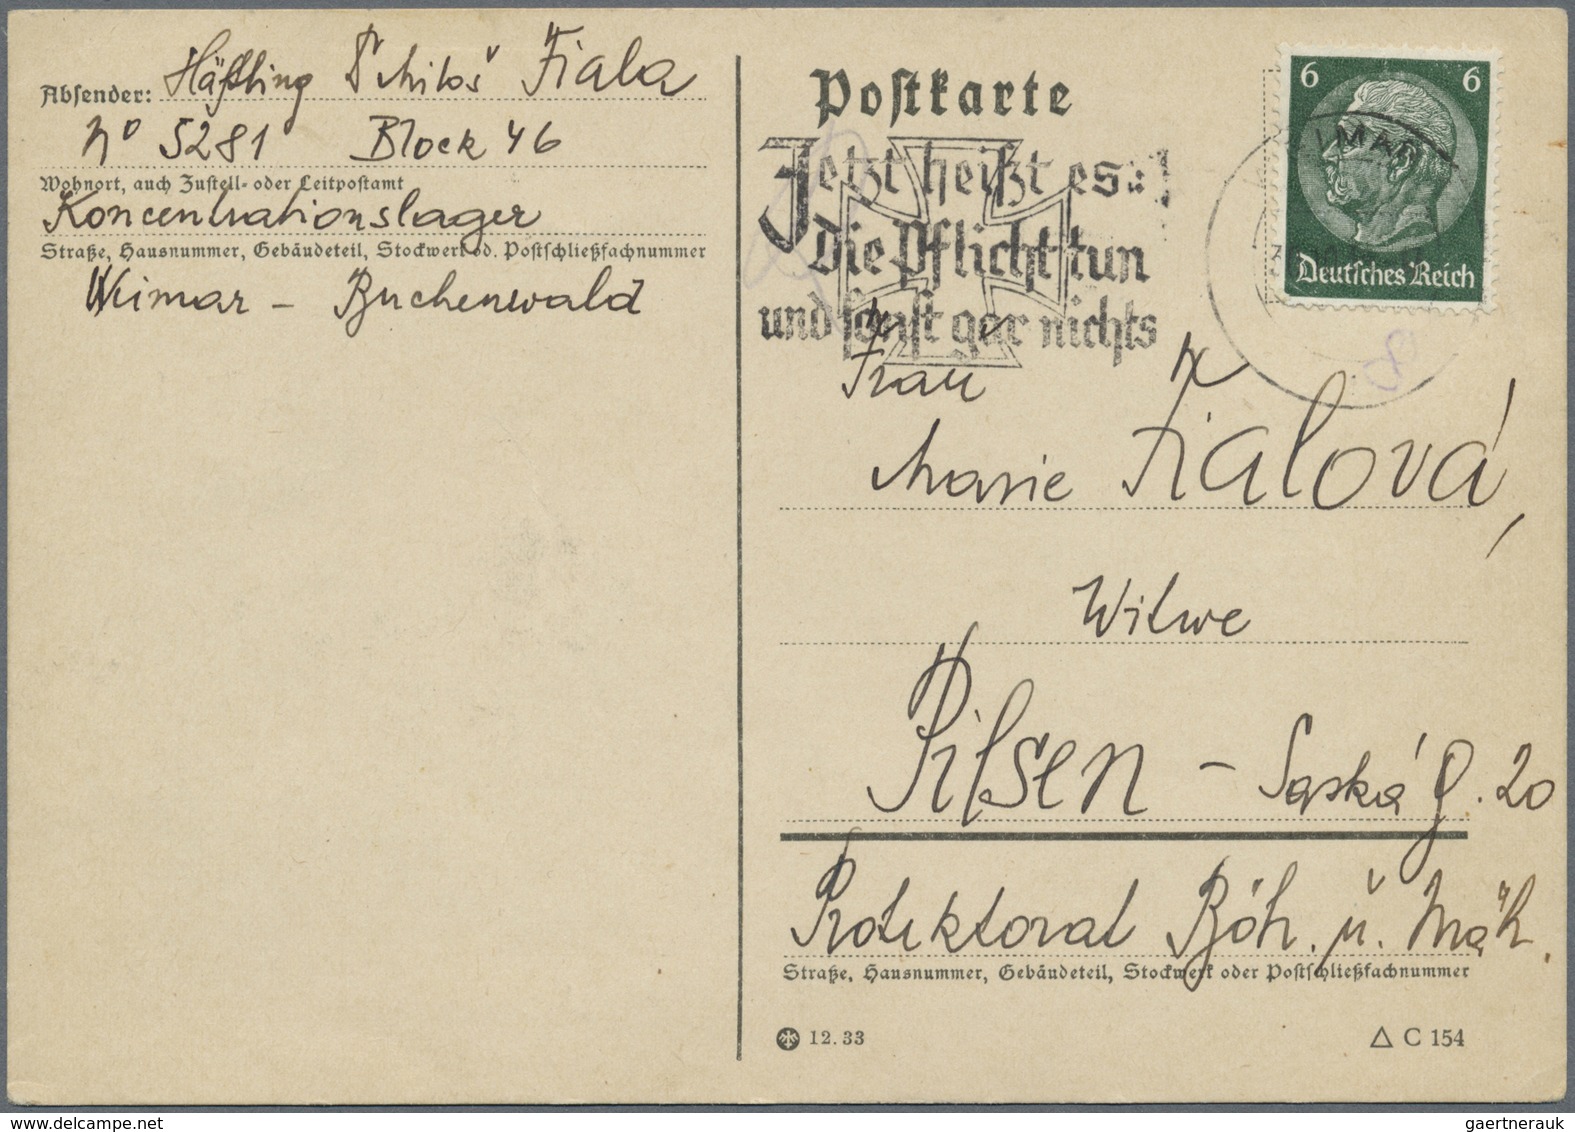 Absender: Häftling Dr Miloš Fiala
No 5281 Block 46
Wohnort, auch Zustell- oder Leitpostamt
Koncentrationslager
Straße, Hausnummer, Gebäudeteil, Stockwerk od. Postschließfachnummer
Weimar - Buchenwald
Postkarte
Jetzt heißt es:
Die Pflicht tun
und sonst gar nichts
6 6
IMAR
Deutsches Reich
Frau
Marie Fialová,
Witwe
Pilsen - Saská g. 20
Protektorat Böh. u. Mäh.
Straße, Hausnummer, Gebäudeteil, Stockwerk oder Postschließfachnummer
12.33
C 154
gaertnerauk